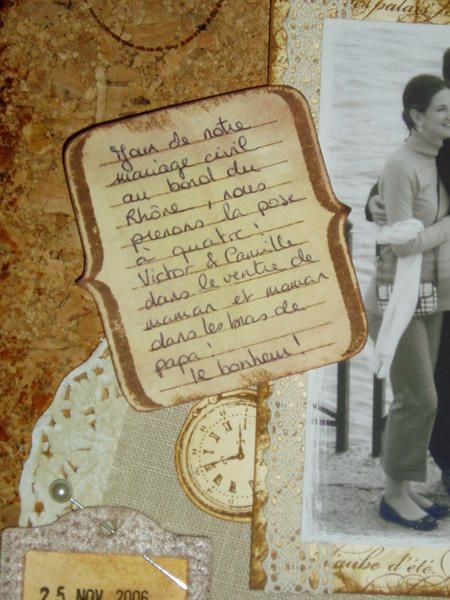 Jour de notre
mariage civil
au bord du
Rhône, nous
prenons la pose
à quatre!
Victor & Camille
dans le ventre de
maman et maman
dans les bras de
papa!
le bonheur!
palais
aube d'été
25 NOV. 2006